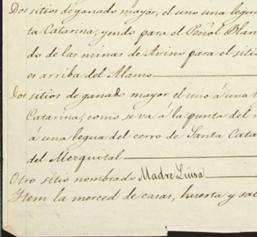 Dos sitios de ganado mayor, el uno una legua
ta Catarina, yendo para el Peñol Blan
do de las minas de Avino para el siti
es arriba del Alamo
Dos sitios de ganado mayor el uno á una
Catarina, como se vá á la punta del
á una legua del cerro de Santa Cata
del Mezquital
Otro sitio nombrado Madre Luisa
Item la merced de casas, huerta y sac